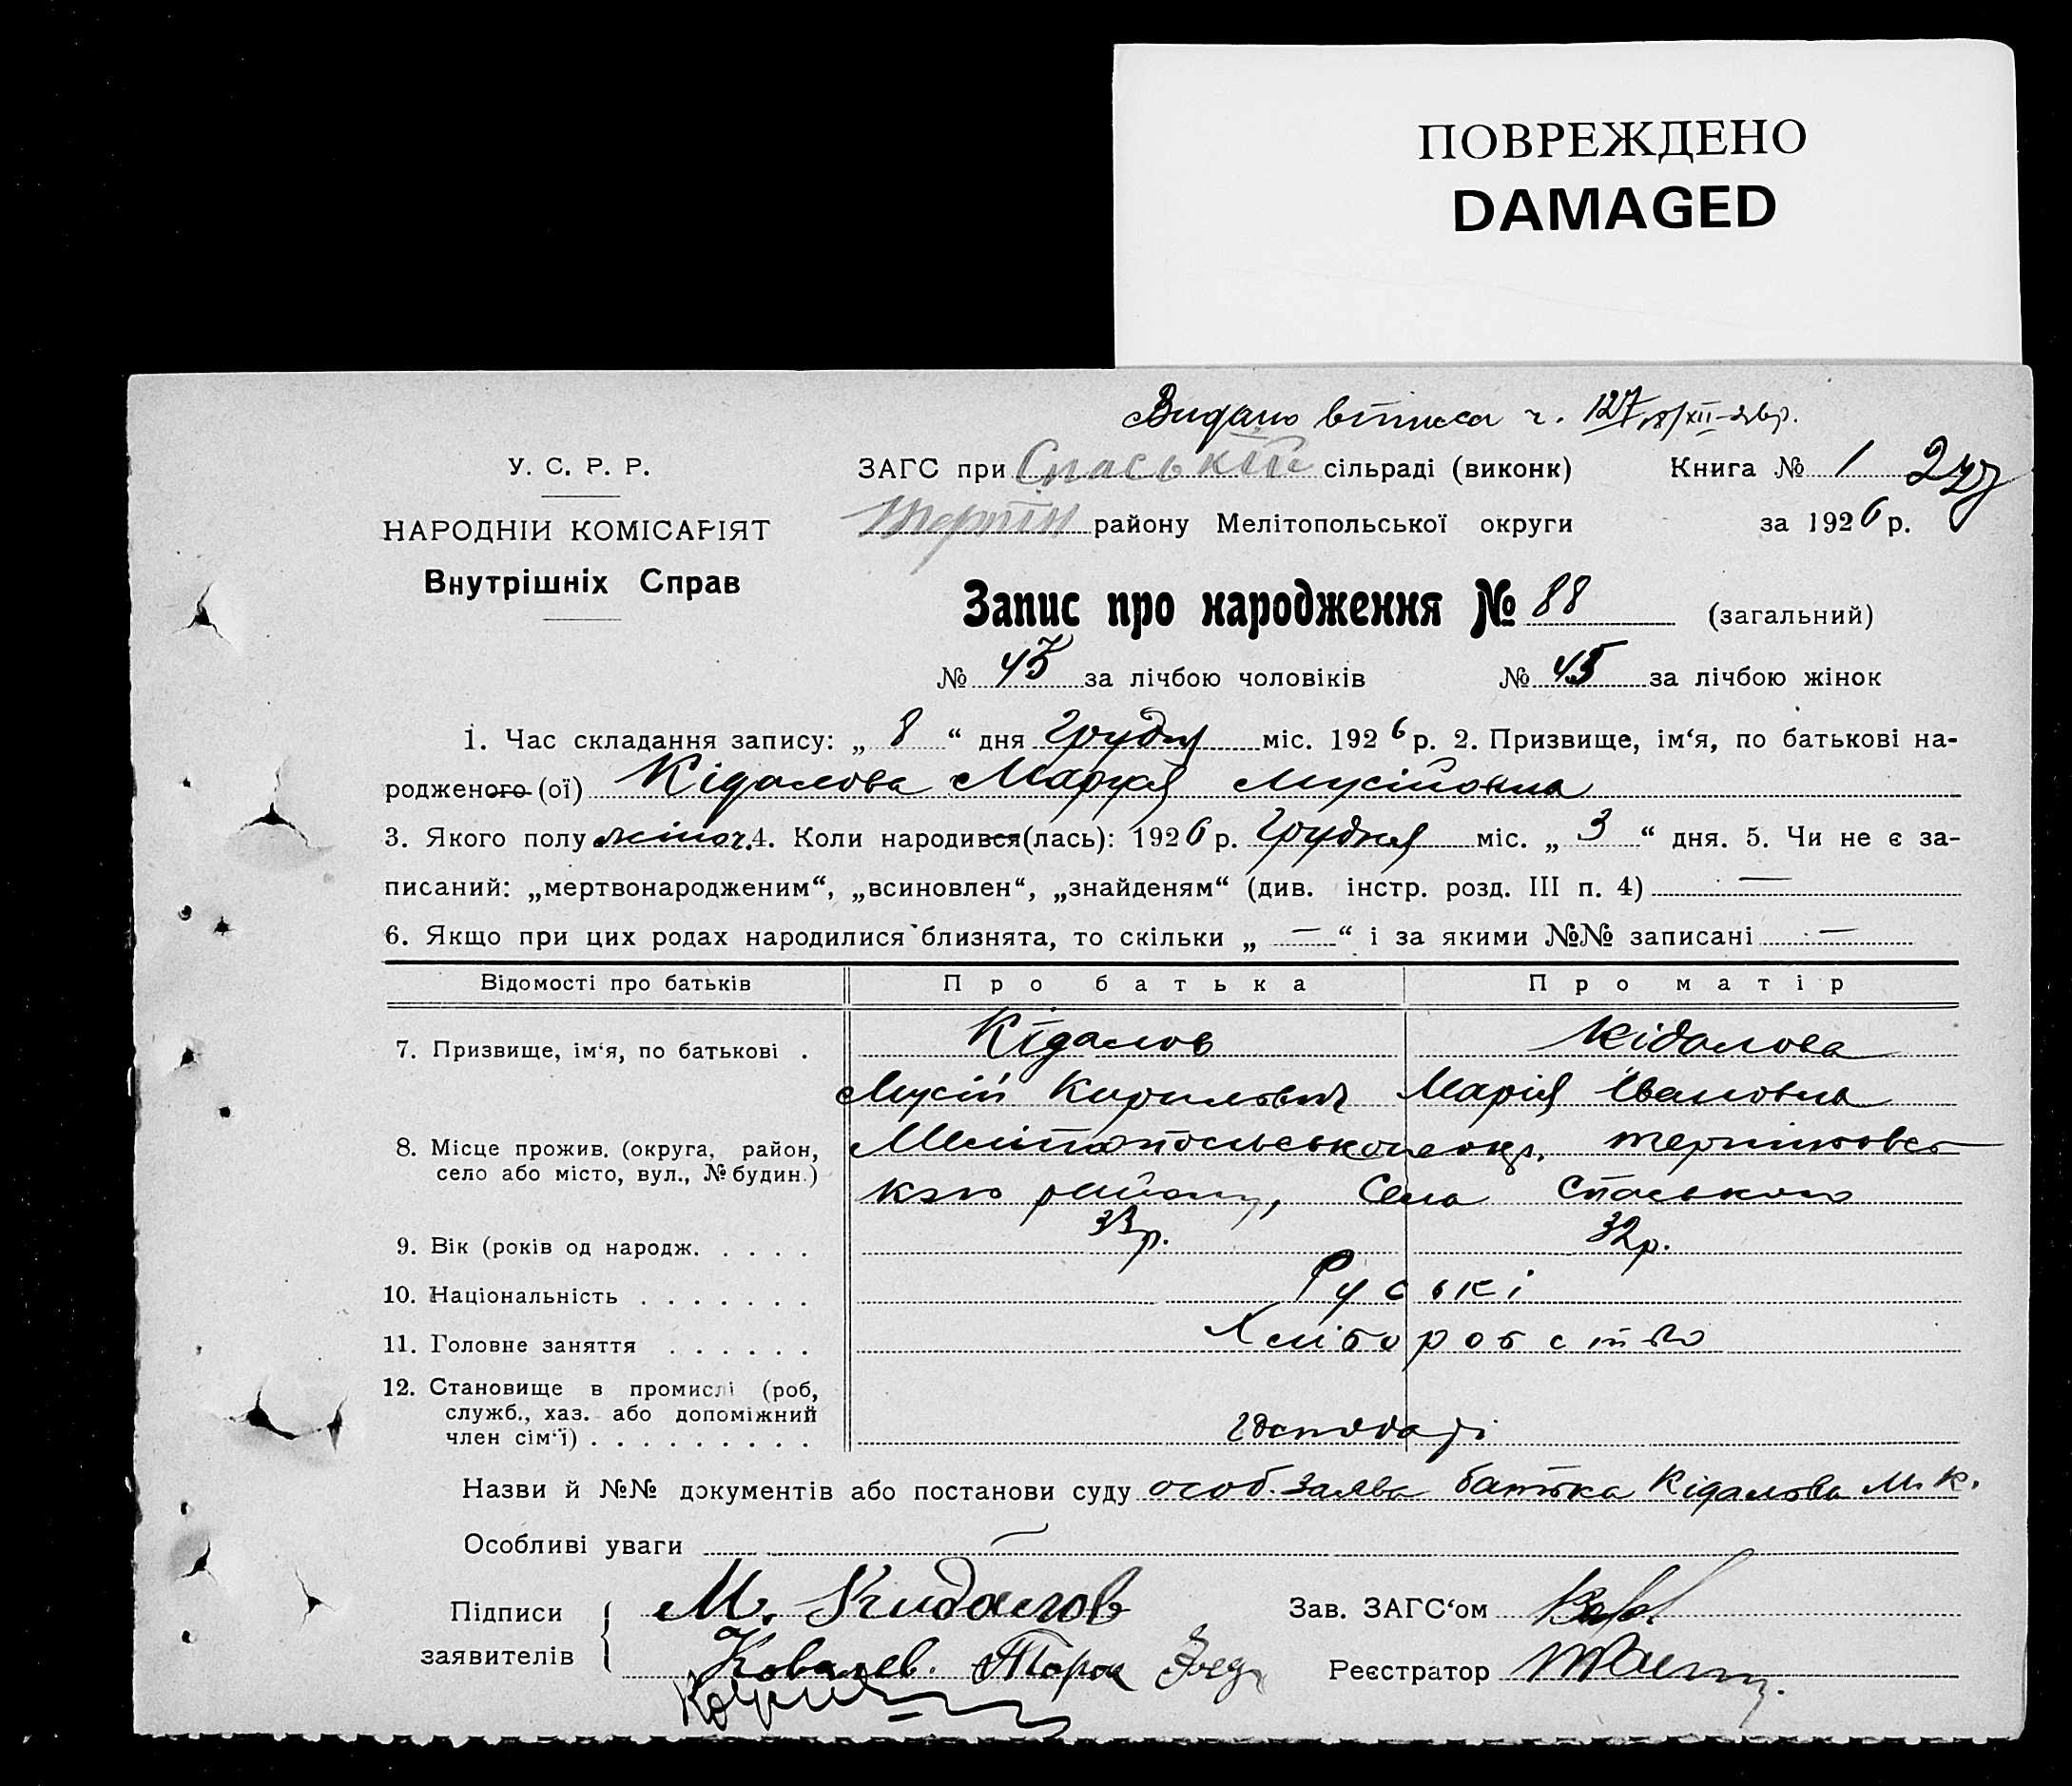 ПОВРЕЖДЕНО
DAMAGED
Видано витиса ч. 127 8/XII-26р.
У. С. Р. Р.
ЗАГС при Спаській сільраді (виконк) Книга № 1
НАРОДНІЙ КОМІСАРІЯТ
Терпін району Мелітопольської округи за 1926 р.
Внутрішніх Справ
Запис про народження № 88 (загальний)
№ 43 за лічбою чоловіків № 45 за лічбою жінок
1. Час складання запису: „ 8 “ дня Грудня міс. 1926 р. 2. Призвище, ім‘я, по батькові на-
родженого (ої) Кідалова Марія Мусійовна
3. Якого полу жіноч. 4. Коли народився(лась): 1926 р. Грудня міс. „ 3 “ дня. 5. Чи не є за-
писаний: „мертвонародженим“, „всиновлен“, „знайденям“ (див. інстр. розд. III п. 4) —
6. Якщо при цих родах народилися близнята, то скільки „ — “ і за якими №№ записані —
Відомості про батьків Про батька Про матір
7. Призвище, ім‘я, по батькові . Кідалов Кідалова
Мусій Кирилович Марія Івановна
8. Місце прожив. (округа, район, село або місто, вул., № будин.) Мелітопольської окр. Терпіновсь
кого району, Села Спаського
9. Вік (років од народж. . . . . 33р. 32р.
10. Національність . . . . . . . Руські
11. Головне заняття . . . . . . Хліборобство
12. Становище в промислі (роб,
служб., хаз. або допоміжний
член сім‘ї) . . . . . . . . . . господарі
Назви й №№ документів або постанови суду особ. заява батька Кідалова М. К.
Особливі уваги —
Підписи заявителів М. Кидалов Зав. ЗАГС‘ом
Ковалев. Реєстратор